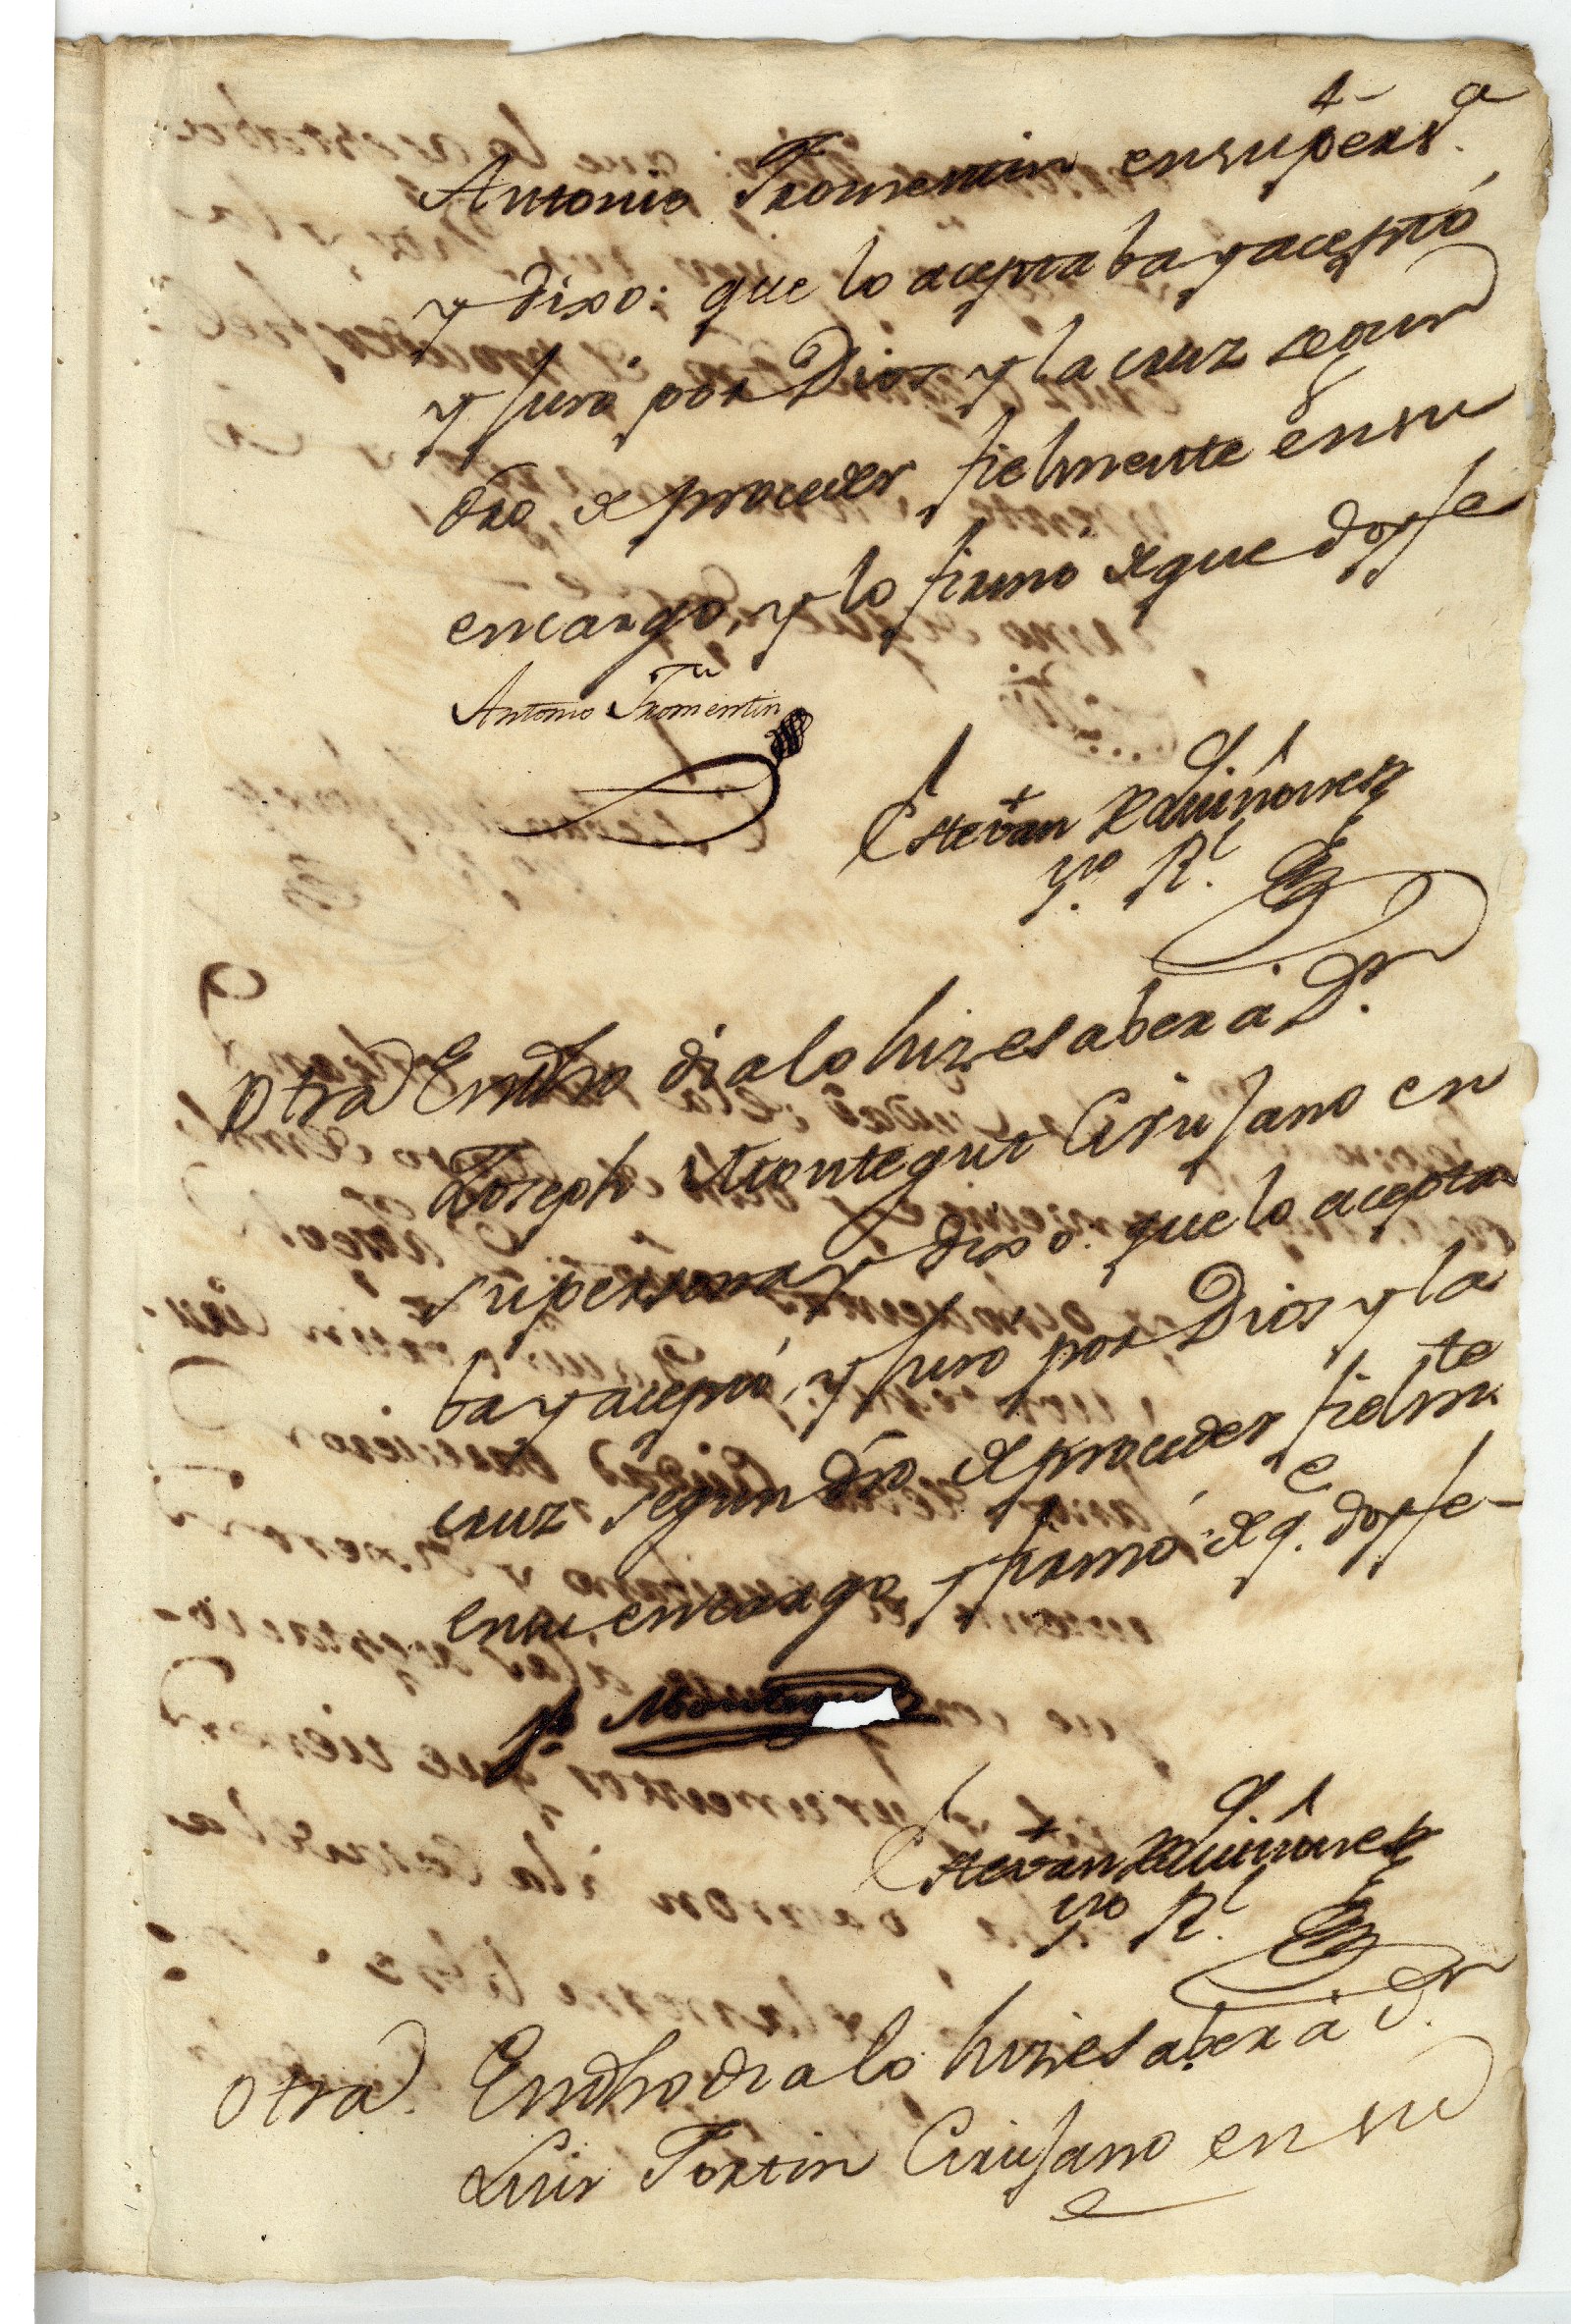 4-
Antonio Fromentin en su pers.a
y dixo: que lo aceptaba y aceptó
y Juró por Dios y la cruz segun
dro de proceder fielmente en su
encargo, y lo firmó de que doy fe
Antonio Fromentin
Estevan de Quiñones
Essno. Rl.
Otra En dho dia lo hize saber a Dn.
Joseph Montegut Cirujano en
su persona y dixo: que lo acepta
ba y aceptó, y Juro por Dios y la
cruz segun dro de proceder fielmte
en su encargo y firmó de q.e doy fe-
Montegut
Estevan de Quiñones
Essno. Rl.
Otra. En dho dia lo hize saber a Dn.
Luis Fortin Cirujano en su